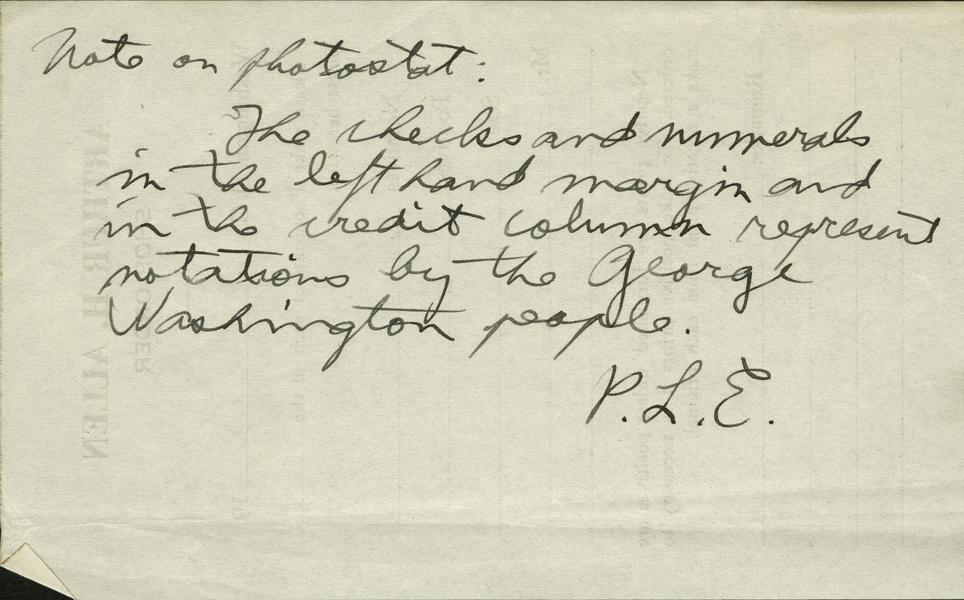 Note on photostat:
The checks and numerals
in the left hand margin and
in the credit column represent
notations by the George
Washington people.
P.L.E.